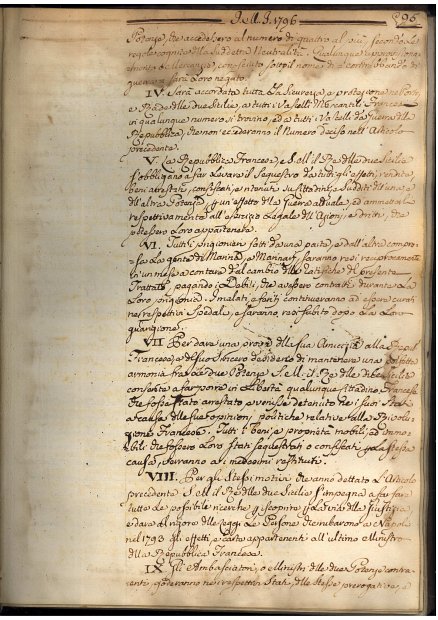 Nell' A. 1796 95
Potenza, che accedessero al numero di quattro al più, secondo le
regole cognite della sudetta Neutralità. Qualunque approvi-
di Mercanzie conosciuto sotto il nome di contrabbando di
guerra sarà Loro negato.
IV. Sarà accordata tutta la Sicurezza, e protezione ne' Porti,
e Rade delle due Sicilie, a tutti i Vascelli Mercantili Francesi
in qualunque numero si trovino, ed a tutti i Vascelli da Guerra della
Repubblica, che non eccederanno il Numero deciso nell' Articolo
precedente.
V. La Repubblica Francese, e S. M. il Re delle due Sicilie
s'obbligano a far Levare il Sequestro da tutti gli effetti, rendite,
beni arrestati, confiscati, e ritenuti su Cittadini, e Sudditi dell' una, e
dell' altra Potenza, per un effetto della Guerra attuale, ed ammetterli
respettivamente all' esercizio Legale dell' Azioni, e dritti, che
potessero Loro appartenere.
VI. Tutti i prigionieri fatti da una parte, e dall' altra compre-
sa La gente di Marina, e Marinari, saranno resi reciprocamente
in un mese a contare dal cambio delle ratifiche del presente
Trattato, pagando i Debiti, che avessero contratti durante la
Loro prigionia. I malati, e feriti continueranno ad essere curati
nei respettivi Spedali, e saranno resi subito dopo la Loro
guarigione.
VII Per dare una prova della sua Amicizia alla Repub.
Francese, e del suo Sincero desiderio di mantenere una perfetta
armonia fra Le due Potenze S. M. il Re delle due Sicilie
consente a far porre in Libertà qualunque Cittadino Francese,
che fosse stato arrestato, e venisse detenuto ne' suoi Stati
a causa delle sue opinioni politiche relative alla Rivolu-
zione Francese. Tutti i beni, e proprietà mobili, ed immo-
bili, che fossero Loro stati sequestrati, o confiscati per La stessa
causa, verranno ai medesimi restituiti.
VIII. Per gli stessi motivi, che anno dettato L' Articolo
precedente S. M. il Re delle due Sicilie s'impegna a far fare
tutte Le possibili ricerche per scoprire per La via della Giustizia,
e dare al rigore delle Leggi Le Persone, che rubarono a Napoli
nel 1793 gli effetti, e Carte appartenenti all' ultimo Ministro
della Repubblica Francese.
IX Gli Ambasciatori, o Ministri delle due Potenze contra-
enti, goderanno nei respettivi Stati, delle stesse prerogative, ed